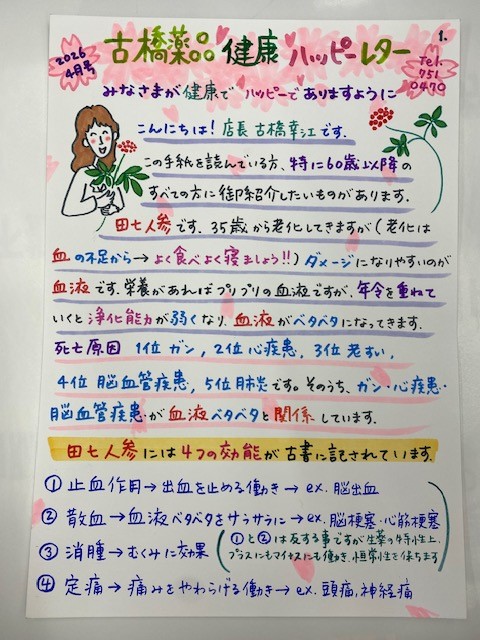 1.
2026 4月号
古橋薬品 健康 ハッピーレター
Tel. 751 0470
みなさまが健康で ハッピーで ありますように
こんにちは! 店長 古橋幸江です.
この手紙を読んでいる方、特に60歳以降の
すべての方に御紹介したいものがあります.
田七人参です. 35歳から老化してきますが(老化は
血の不足から→よく食べよく寝ましょう!!) ダメージになりやすいのが
血液です. 栄養があればプリプリの血液ですが、年令を重ねて
いくと浄化能力が弱くなり、血液がベタベタになってきます.
死亡原因 1位 ガン, 2位 心疾患, 3位 老すい,
4位 脳血管疾患, 5位 肺炎です. そのうち、ガン・心疾患・
脳血管疾患が血液ベタベタと関係しています.
田七人参には4つの効能が古書に記されています.
① 止血作用→出血を止める働き→ex. 脳出血
② 散血→血液ベタベタをサラサラに→ex. 脳梗塞・心筋梗塞
③ 消腫→むくみに効果
(①と②は反する事ですが生薬の特性上、
プラスにもマイナスにも働き、恒常性を保ちます)
④ 定痛→痛みをやわらげる働き→ex. 頭痛, 神経痛